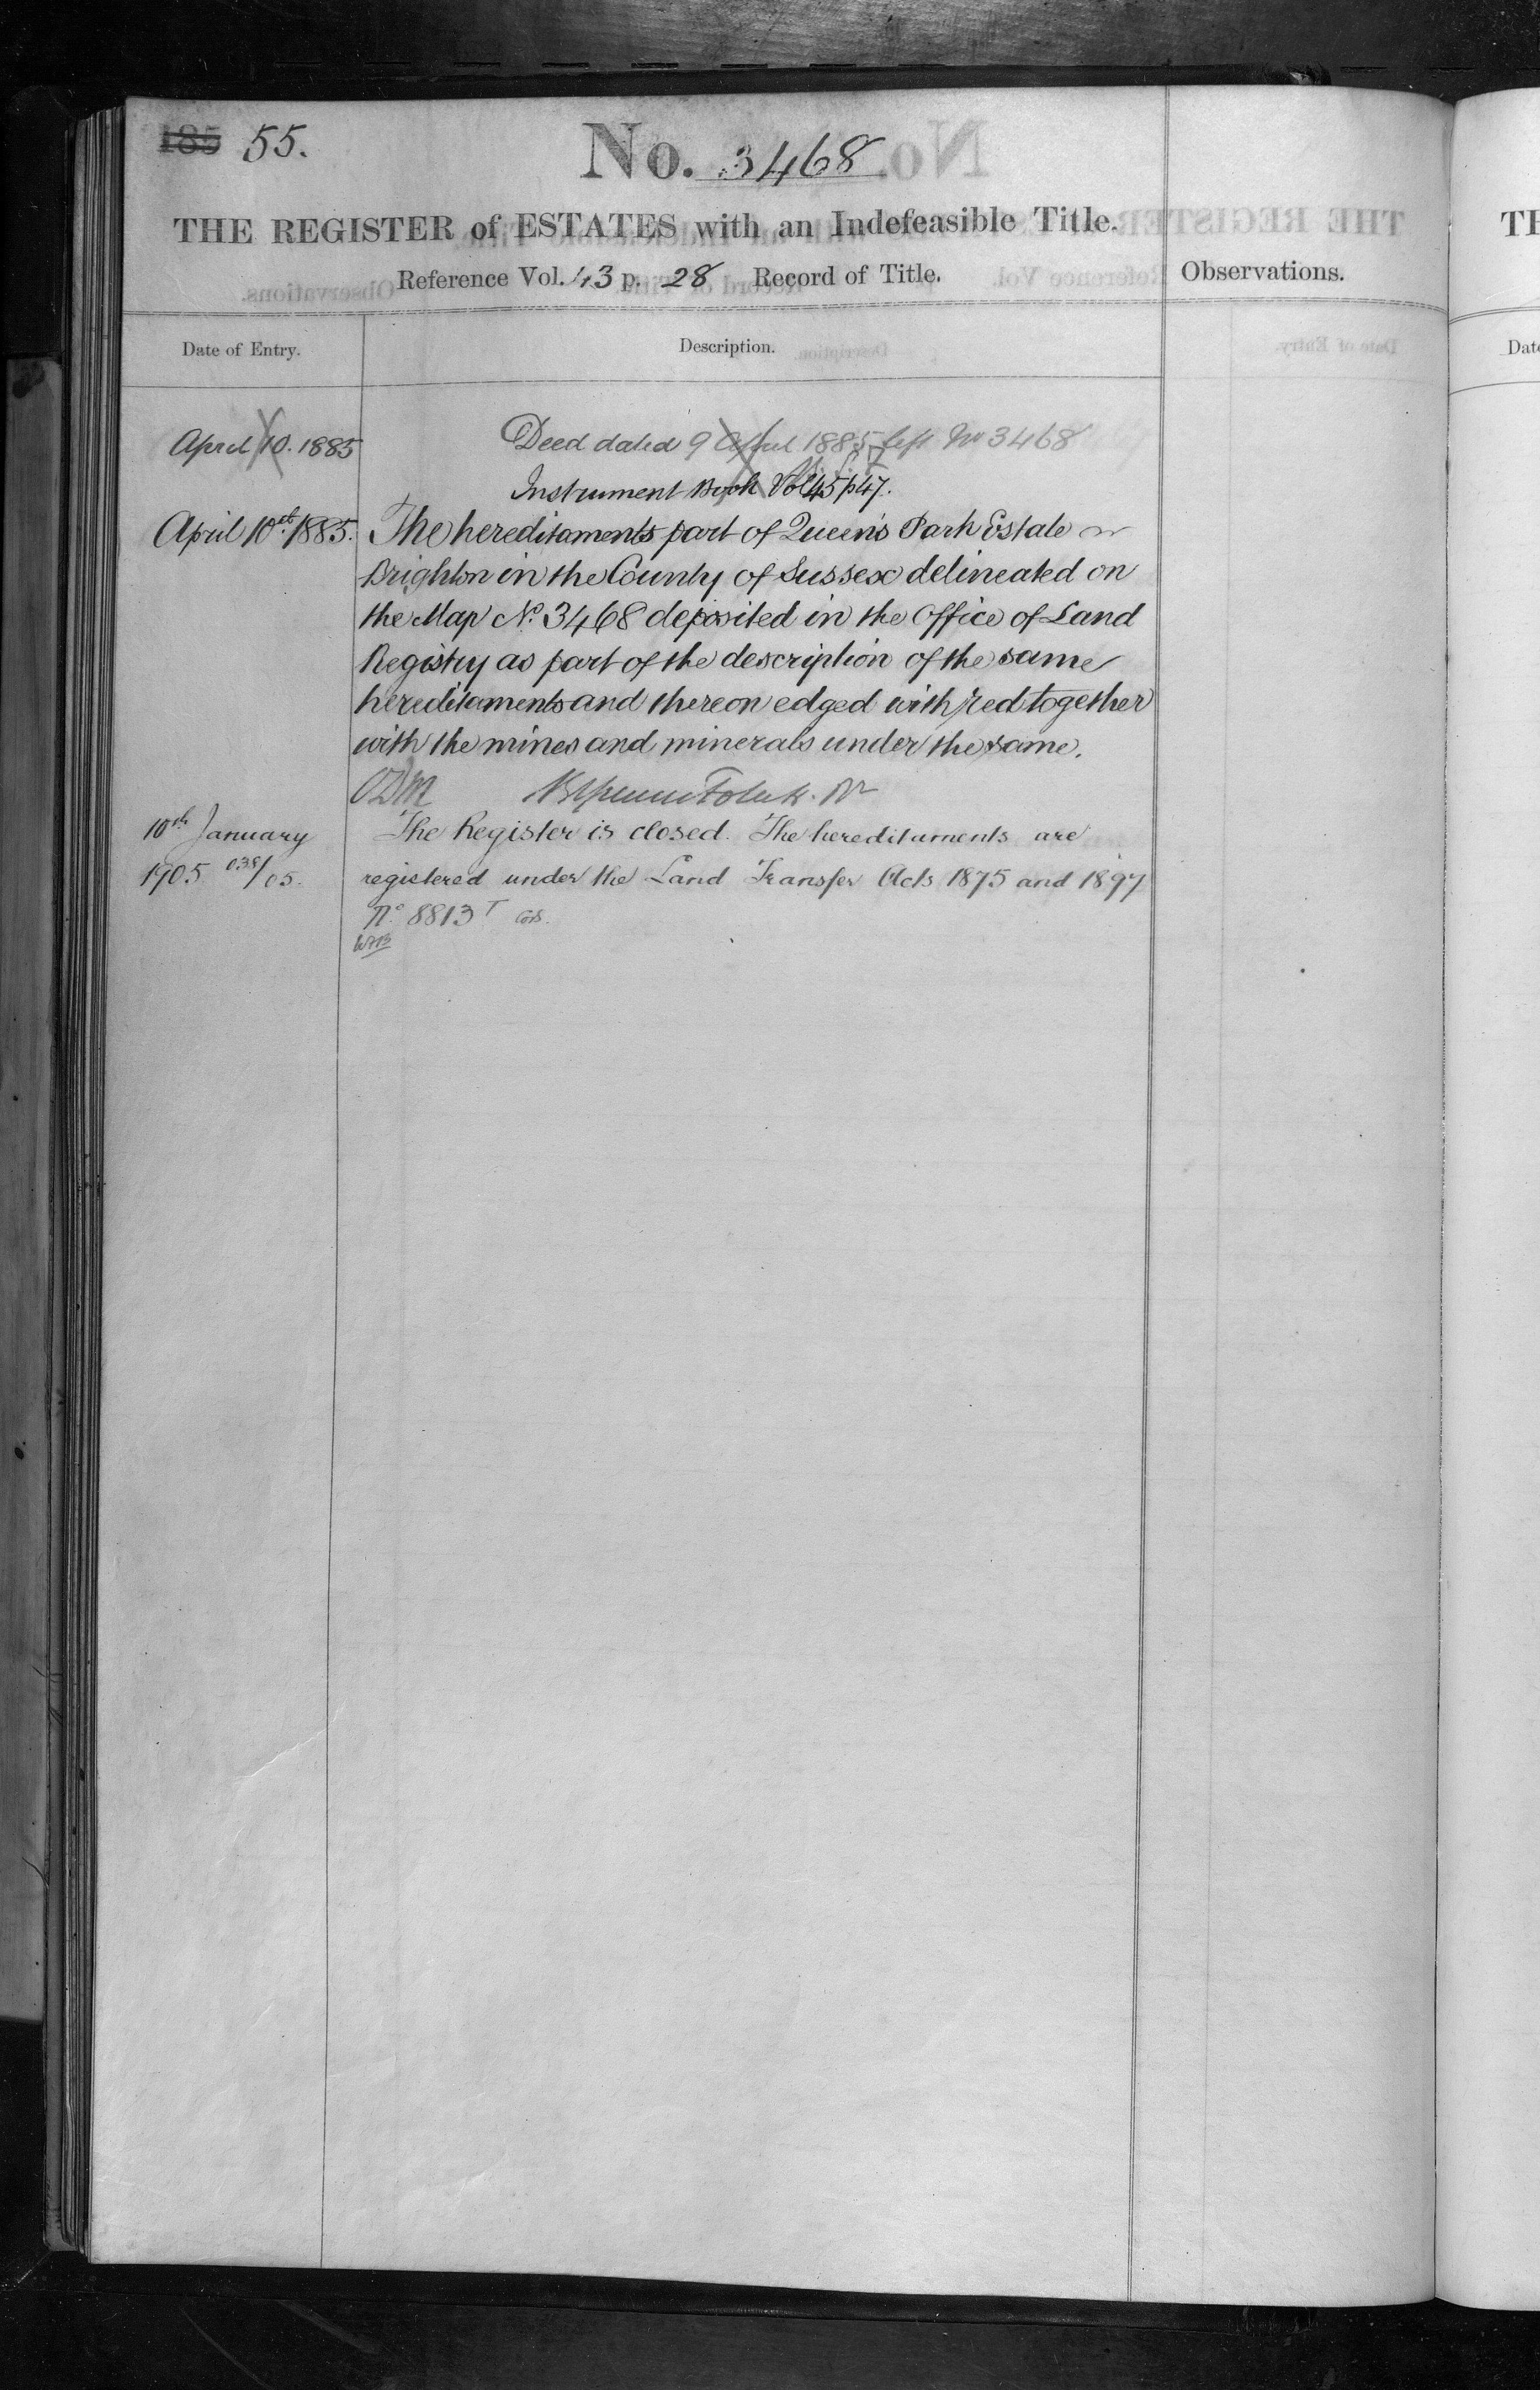 185 55.
No. 3468
THE REGISTER of ESTATES with an Indefeasible Title.
Reference Vol. 43 p. 28 Record of Title.
Observations.
Date of Entry.
Description.
April 10. 1885
Deed dated 9 April 1885 left No 3468
Instrument Book Vol 45 p 47.
April 10th 1885.
The hereditaments part of Queen's Park Estate
Brighton in the County of Sussex delineated on
the Map No. 3468 deposited in the Office of Land
Registry as part of the description of the same
hereditaments and thereon edged with red together
with the mines and minerals under the same.
10th January
1905 038/05.
The Register is closed. The hereditaments are
registered under the Land Transfer Acts 1875 and 1897
No. 8813 T